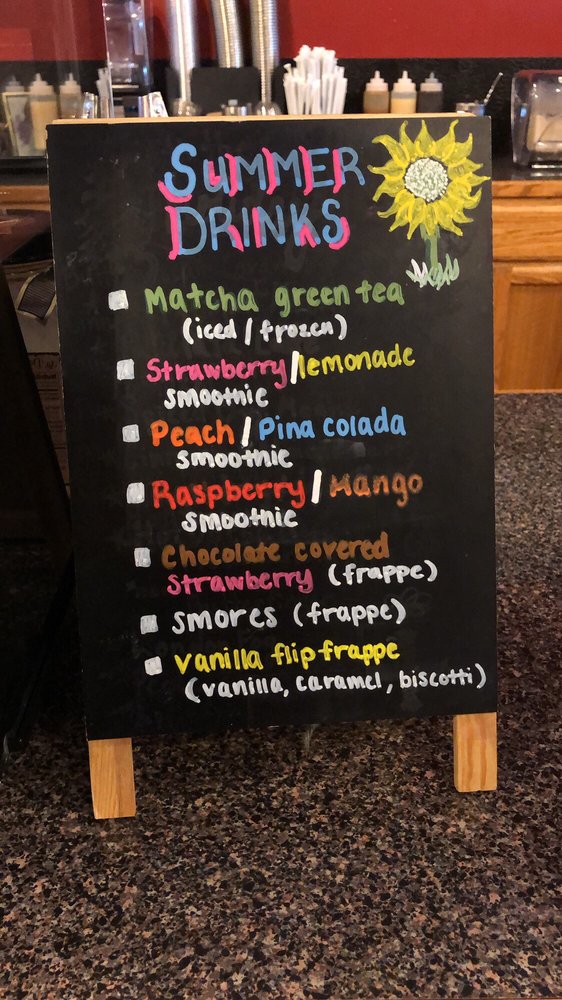 SUMMER
DRINKS
Matcha green tea
(iced/frozen)
Strawberry/lemonade
smoothie
Peach/Pina colada
smoothie
Raspberry/Mango
smoothie
Chocolate covered
Strawberry (frappe)
smores (frappe)
vanilla flip frappe
(vanilla, caramel, biscotti)